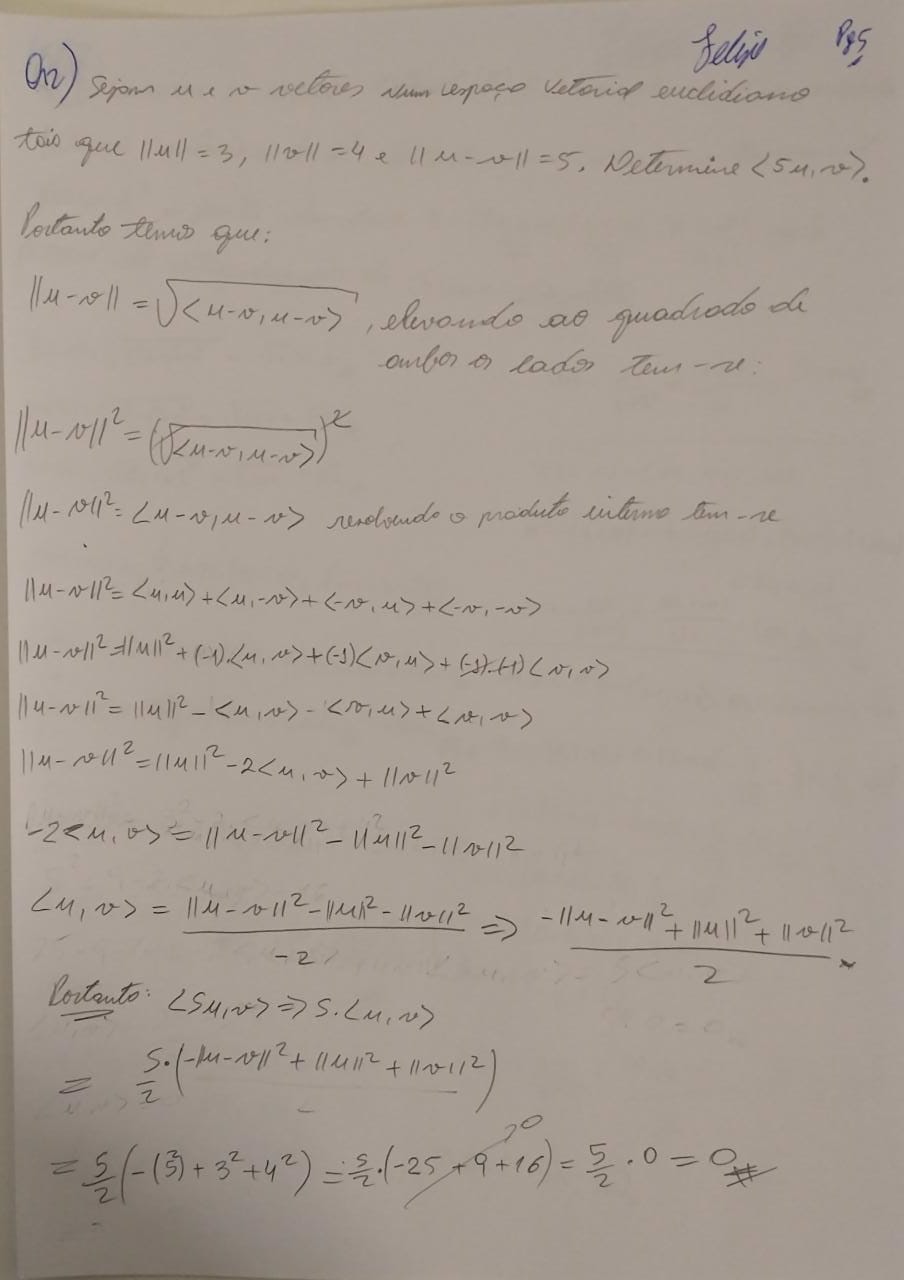 Felipe Pg5
Q2) Sejam u e v vetores num espaço vetorial euclidiano
tais que ||u|| = 3, ||v|| = 4 e ||u - v|| = 5. Determine <5u, v>.
Portanto temos que:
||u-v|| = √<u-v, u-v>, elevando ao quadrado de
ambos os lados tem-se:
||u-v||² = (√<u-v, u-v>)²
||u-v||² = <u-v, u-v> resolvendo o produto interno tem-se
||u-v||² = <u,u> + <u,-v> + <-v,u> + <-v,-v>
||u-v||² = ||u||² + (-1).<u,v> + (-1)<v,u> + (-1).(-1)<v,v>
||u-v||² = ||u||² - <u,v> - <v,u> + <v,v>
||u-v||² = ||u||² - 2<u,v> + ||v||²
-2<u,v> = ||u-v||² - ||u||² - ||v||²
<u,v> = (||u-v||² - ||u||² - ||v||²)/-2 ⇒ (-||u-v||² + ||u||² + ||v||²)/2
Portanto: <5u,v> ⇒ 5.<u,v>
= 5/2.(-||u-v||² + ||u||² + ||v||²)
= 5/2(-(5)² + 3² + 4²) = 5/2.(-25 + 9 + 16) 0 = 5/2 . 0 = 0